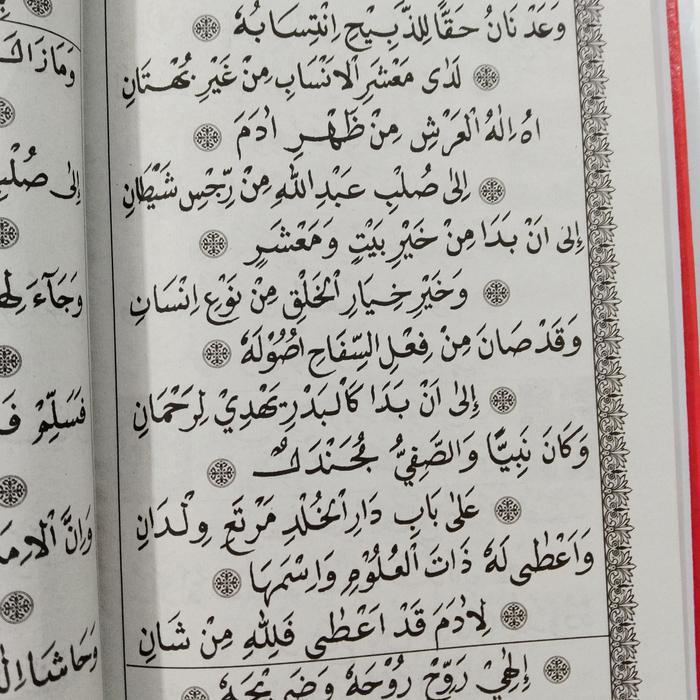 وَعَدْنَانُ حَقًّا لِلذَّبِيْحِ اِنْتِسَابُهٗ
لَدٰى مَعْشَرِ الْاَنْسَابِ مِنْ غَيْرِ بُهْتَانِ
اِلٰهُ الْعَرْشِ مِنْ ظَهْرِ اٰدَمَ
اِلٰى صُلْبِ عَبْدِ اللهِ مِنْ رِجْسِ شَيْطَانِ
اِلٰى اَنْ بَدَا مِنْ خَيْرِ بَيْتٍ وَمَعْشَرٍ
وَخَيْرِ خِيَارِ الْخَلْقِ مِنْ نَوْعِ اِنْسَانِ
وَقَدْ صَانَ مِنْ فِعْلِ السِّفَاحِ اُصُوْلَهٗ
اِلٰى اَنْ بَدَا كَالْبَدْرِ يَهْدِيْ لِرَحْمَانِ
وَكَانَ نَبِيًّا وَالصَّفِيُّ مُجَنْدَلٌ
عَلٰى بَابِ دَارِ الْخُلْدِ مَرْتَعِ وِلْدَانِ
وَاَعْطٰى لَهٗ ذَاتَ الْعُلُوْمِ وَاِسْمَهَا
لِاٰدَمَ قَدْ اَعْطٰى فَلِلّٰهِ مِنْ شَانِ
اِلٰهِيْ رَوِّحْ رُوْحَهٗ وَضَرِيْحَهٗ
وَمَازَالَ
اِلٰى
وَجَآءَ
فَسَلِّمْ
وَاِنَّ
وَحَاشَا